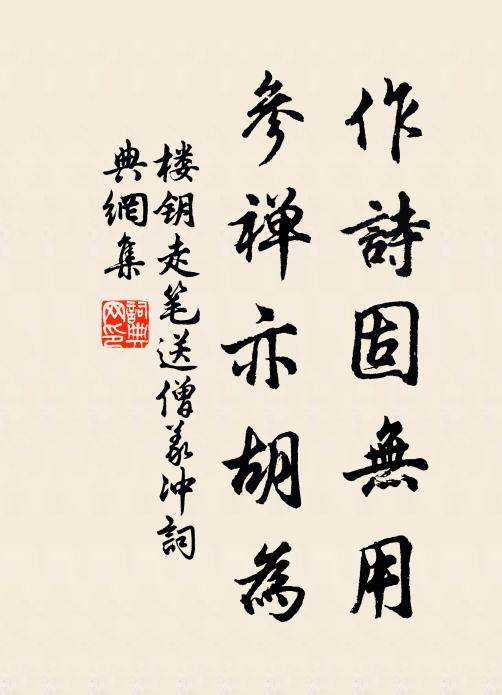 作詩固無用
參禅亦胡為
楼钥走笔送僧義冲詞
典網集
詞典
网印